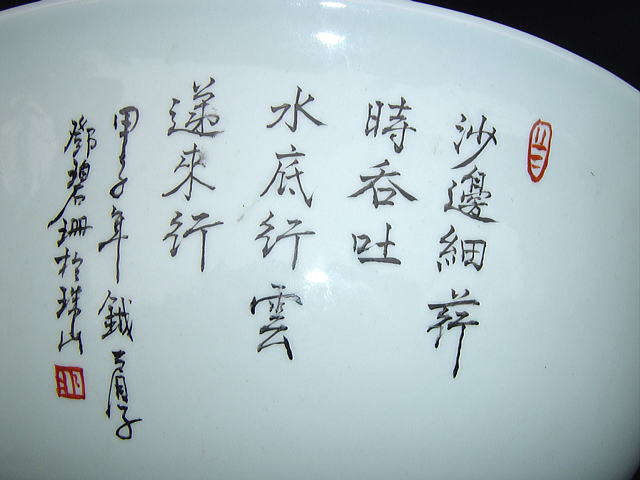 沙邊細荇
時吞吐
水底行雲
遞來行
甲子年鐵肩子
鄧碧珊於珠山